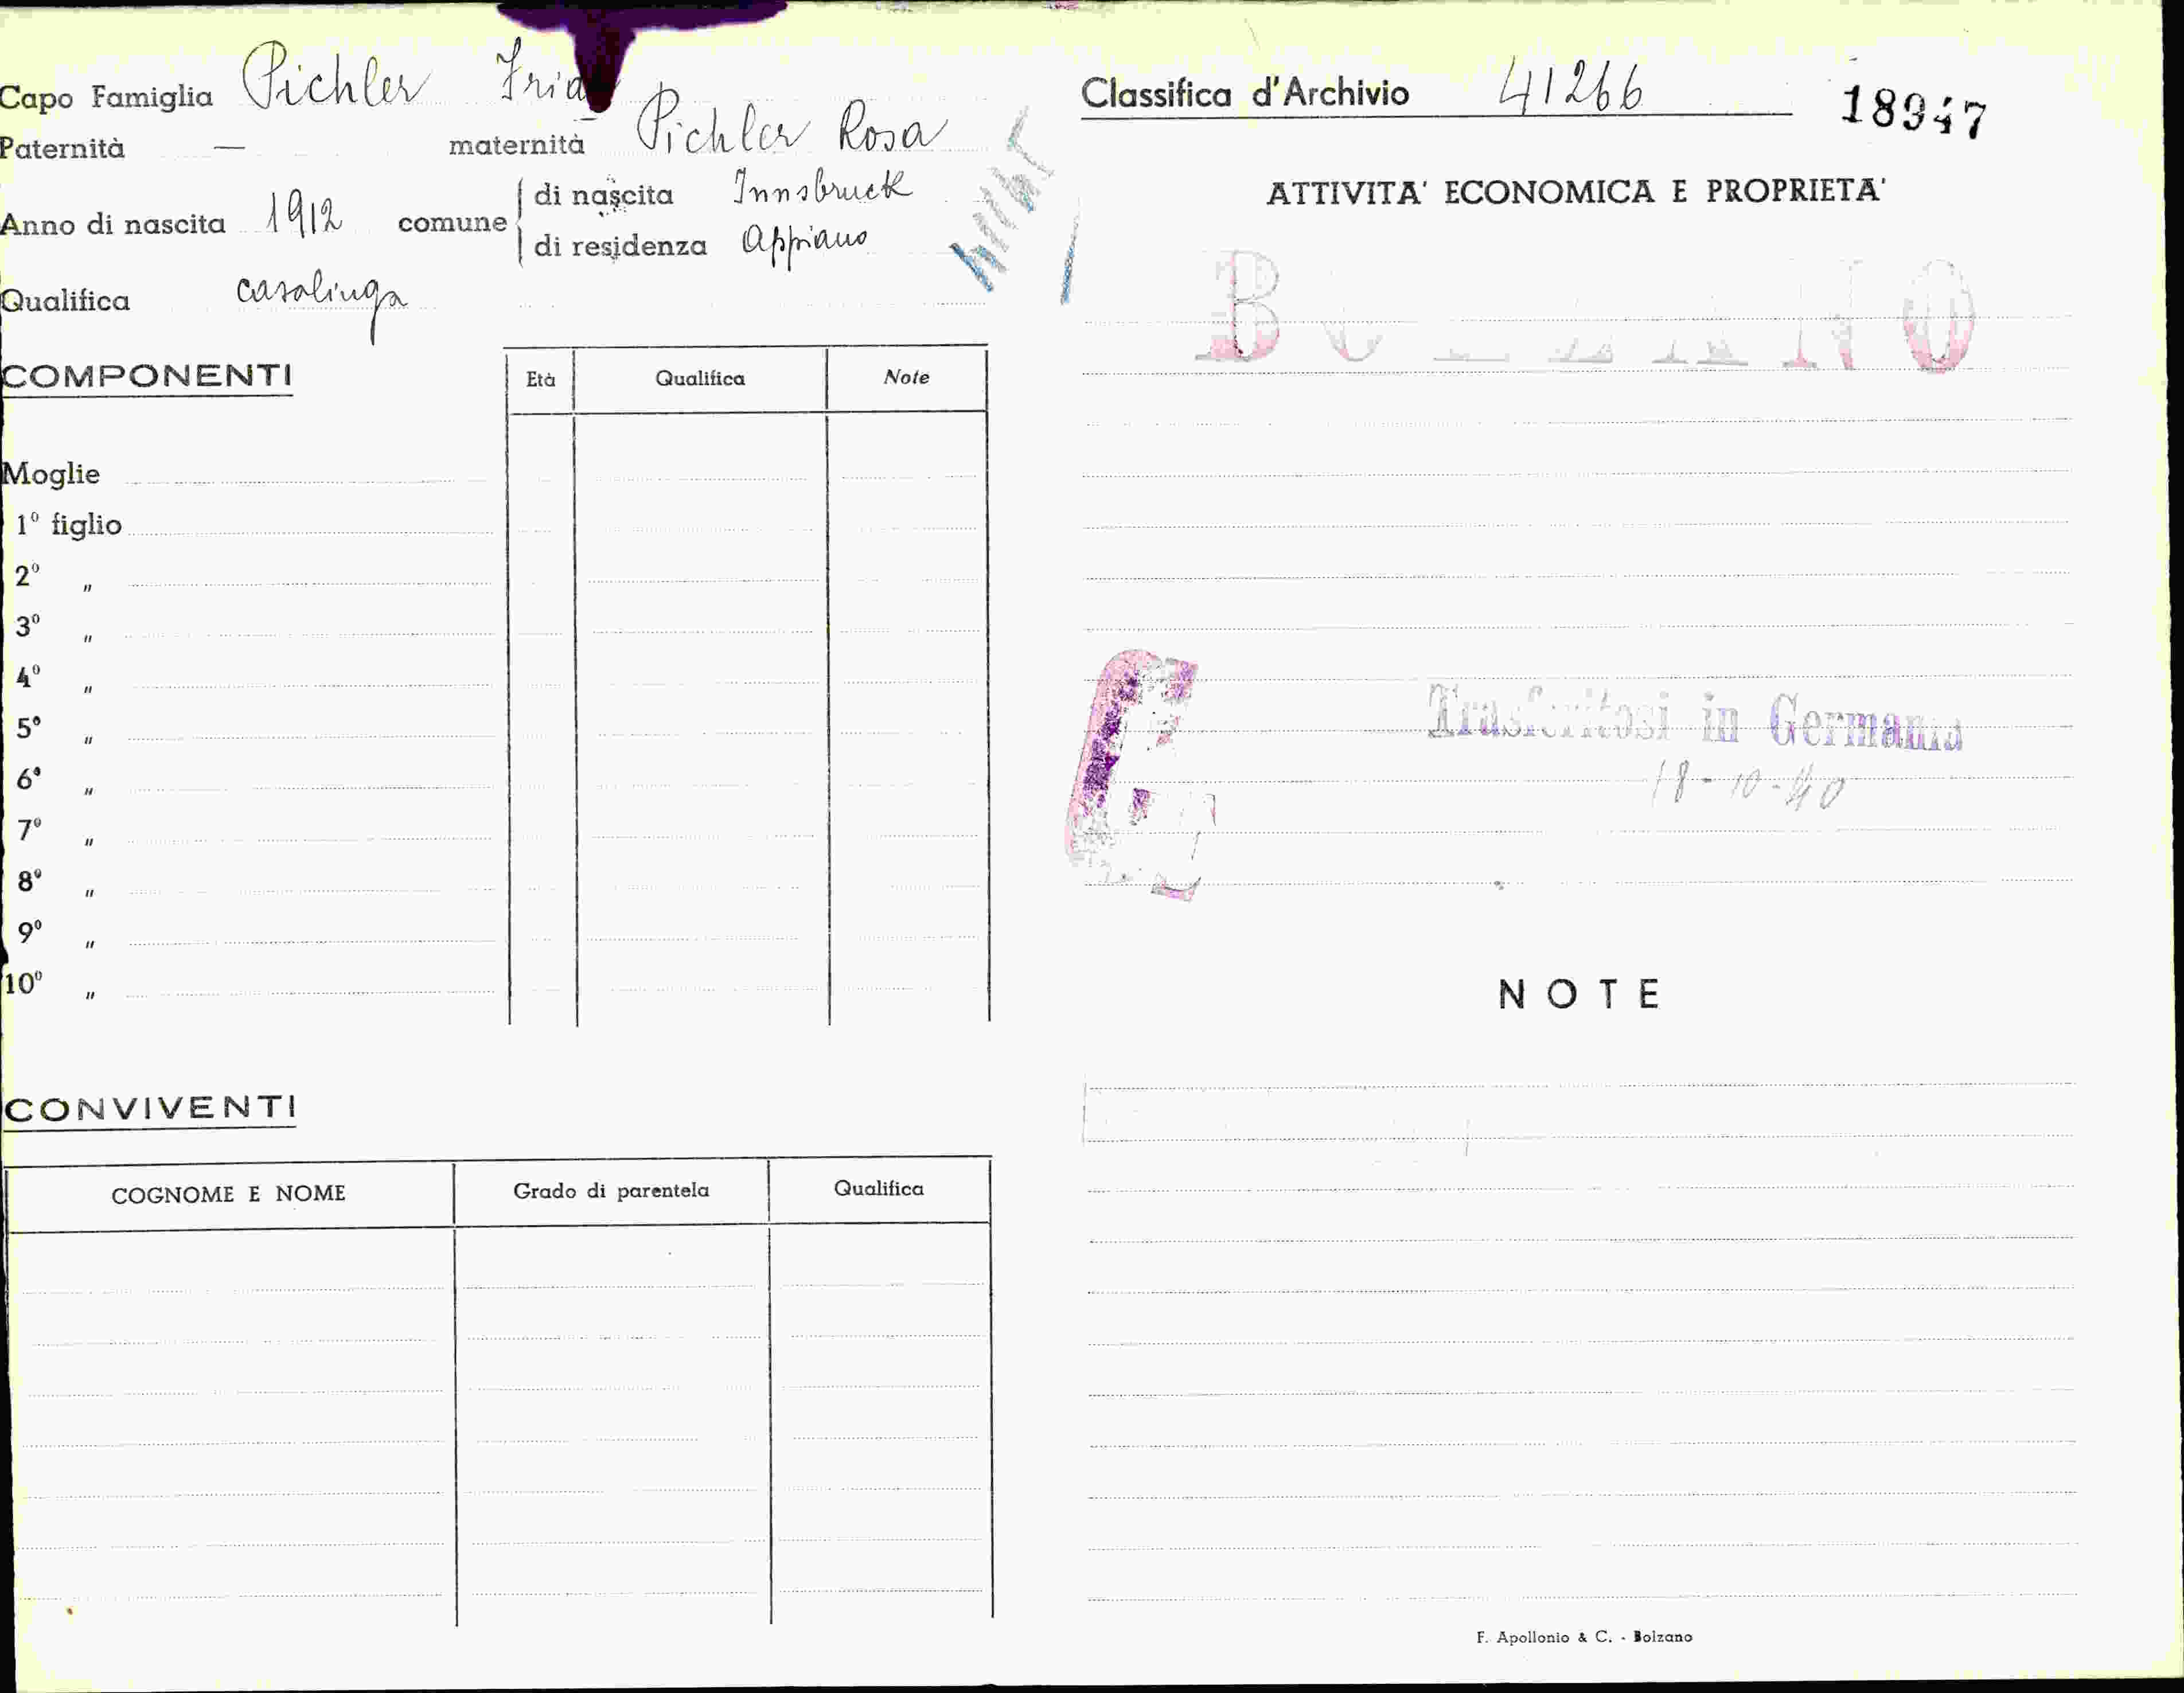 Capo Famiglia Pichler
Paternità — maternità Pichler Rosa
Anno di nascita 1912 comune
di nascita Innsbruck
di residenza Appiano
Qualifica casalinga
COMPONENTI
Età Qualifica Note
Moglie
1º figlio
2º "
3º "
4º "
5º "
6º "
7º "
8º "
9º "
10º "
CONVIVENTI
COGNOME E NOME Grado di parentela Qualifica
Classifica d'Archivio 41266 18947
ATTIVITA' ECONOMICA E PROPRIETA'
BOLZANO
Trasferitosi in Germania
18-10-40
NOTE
F. Apollonio & C. - Bolzano